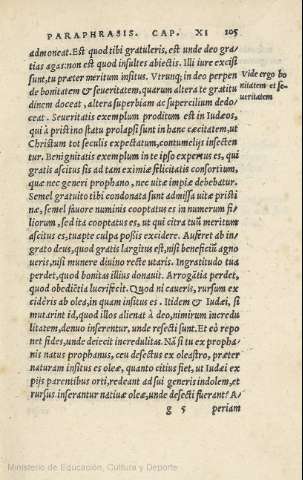 PARAPHRASIS. CAP. XI 105
admoneat. Est quod tibi gratuleris, est unde deo gra⸗
tias agas: non est quod insultes abiectis. Illi iure excisi
sunt, tu præter meritum insitus. Vtrunq; in deo perpen
de bonitatem & seueritatem, quarum altera te gratitu
dinem doceat, altera superbiam ac supercilium dedo⸗
ceat. Seueritatis exemplum proditum est in Iudæos,
qui à pristino statu prolapsi sunt in hanc cæcitatem, ut
Christum tot seculis expectatum, contumelijs insecten
tur. Benignitatis exemplum in te ipso expertus es, qui
gratis ascitus sis ad tam eximiæ felicitatis consortium,
quæ nec generi prophano, nec uitæ impiæ debebatur.
Semel gratuito tibi condonata sunt admissa uitæ pristi
næ, semel fauore numinis cooptatus es in numerum fi⸗
liorum, sed ita cooptatus es, ut qui citra tuũ meritum
ascitus es, tuapte culpa possis excidere. Auferet ab in⸗
grato deus, quod gratis largitus est, nisi beneficiũ agno
ueris, nisi munere diuino recte utaris. Ingratitudo tua
perdet, quod bonitas illius donauit. Arrogãtia perdet,
quod obediẽtia lucrifecit. Quod ni caueris, rursum ex
cideris ab olea, in quam insitus es. Itidem & Iudæi, si
mutarint id, quod illos alienat à deo, nimirum incredu
litatem, denuo inserentur, unde resecti sunt. Et eò repo
net fides, unde deiecit incredulitas. Nã si tu ex propha⸗
nis natus prophanus, ceu desectus ex oleastro, præter
naturam insitus es oleæ, quanto citius fiet, ut Iudæi ex
pijs parentibus orti, redeant ad sui generis indolem, et
rursus inserantur natiuæ oleæ, unde desecti fuerant? A⸗
g 5 periam
Vide ergo bo
nitatem et se⸗
ueritatem
Ministerio de Educación, Cultura y Deporte